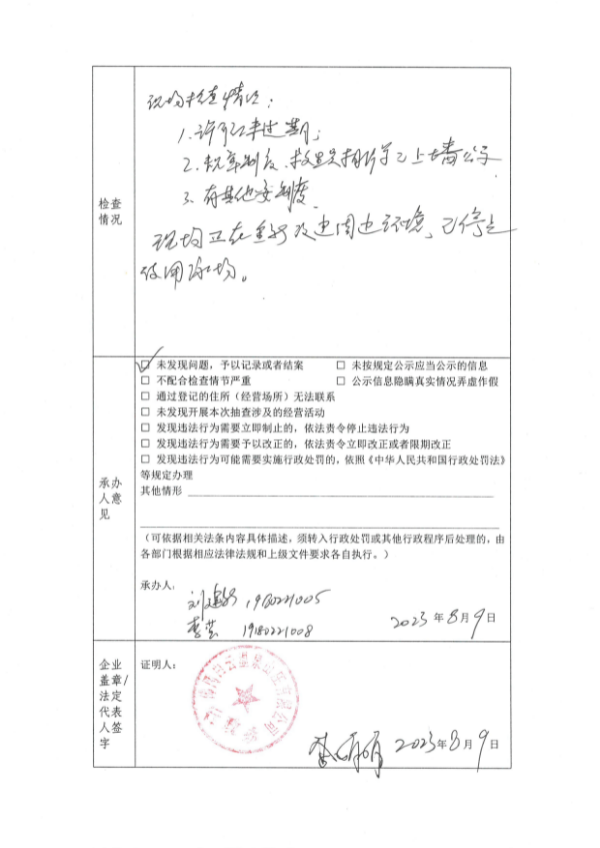 检查情况
现场检查情况：
1.许可证未过期；
2.规章制度、救生员揭示等已上墙公示
3.有其他安全制度
现场正在 及周边环境，已停止
使用泳场。
承办人意见
☑ 未发现问题，予以记录或者结案 □ 未按规定公示应当公示的信息
□ 不配合检查情节严重 □ 公示信息隐瞒真实情况弄虚作假
□ 通过登记的住所（经营场所）无法联系
□ 未发现开展本次抽查涉及的经营活动
□ 发现违法行为需要立即制止的，依法责令停止违法行为
□ 发现违法行为需要予以改正的，依法责令立即改正或者限期改正
□ 发现违法行为可能需要实施行政处罚的，依照《中华人民共和国行政处罚法》
等规定办理
其他情形
（可依据相关法条内容具体描述，须转入行政处罚或其他行政程序后处理的，由
各部门根据相应法律法规和上级文件要求各自执行。）
承办人：
刘 19180221005
李芸 19180221008
2023年8月9日
企业盖章/法定代表人签字
证明人：
李 2023年8月9日